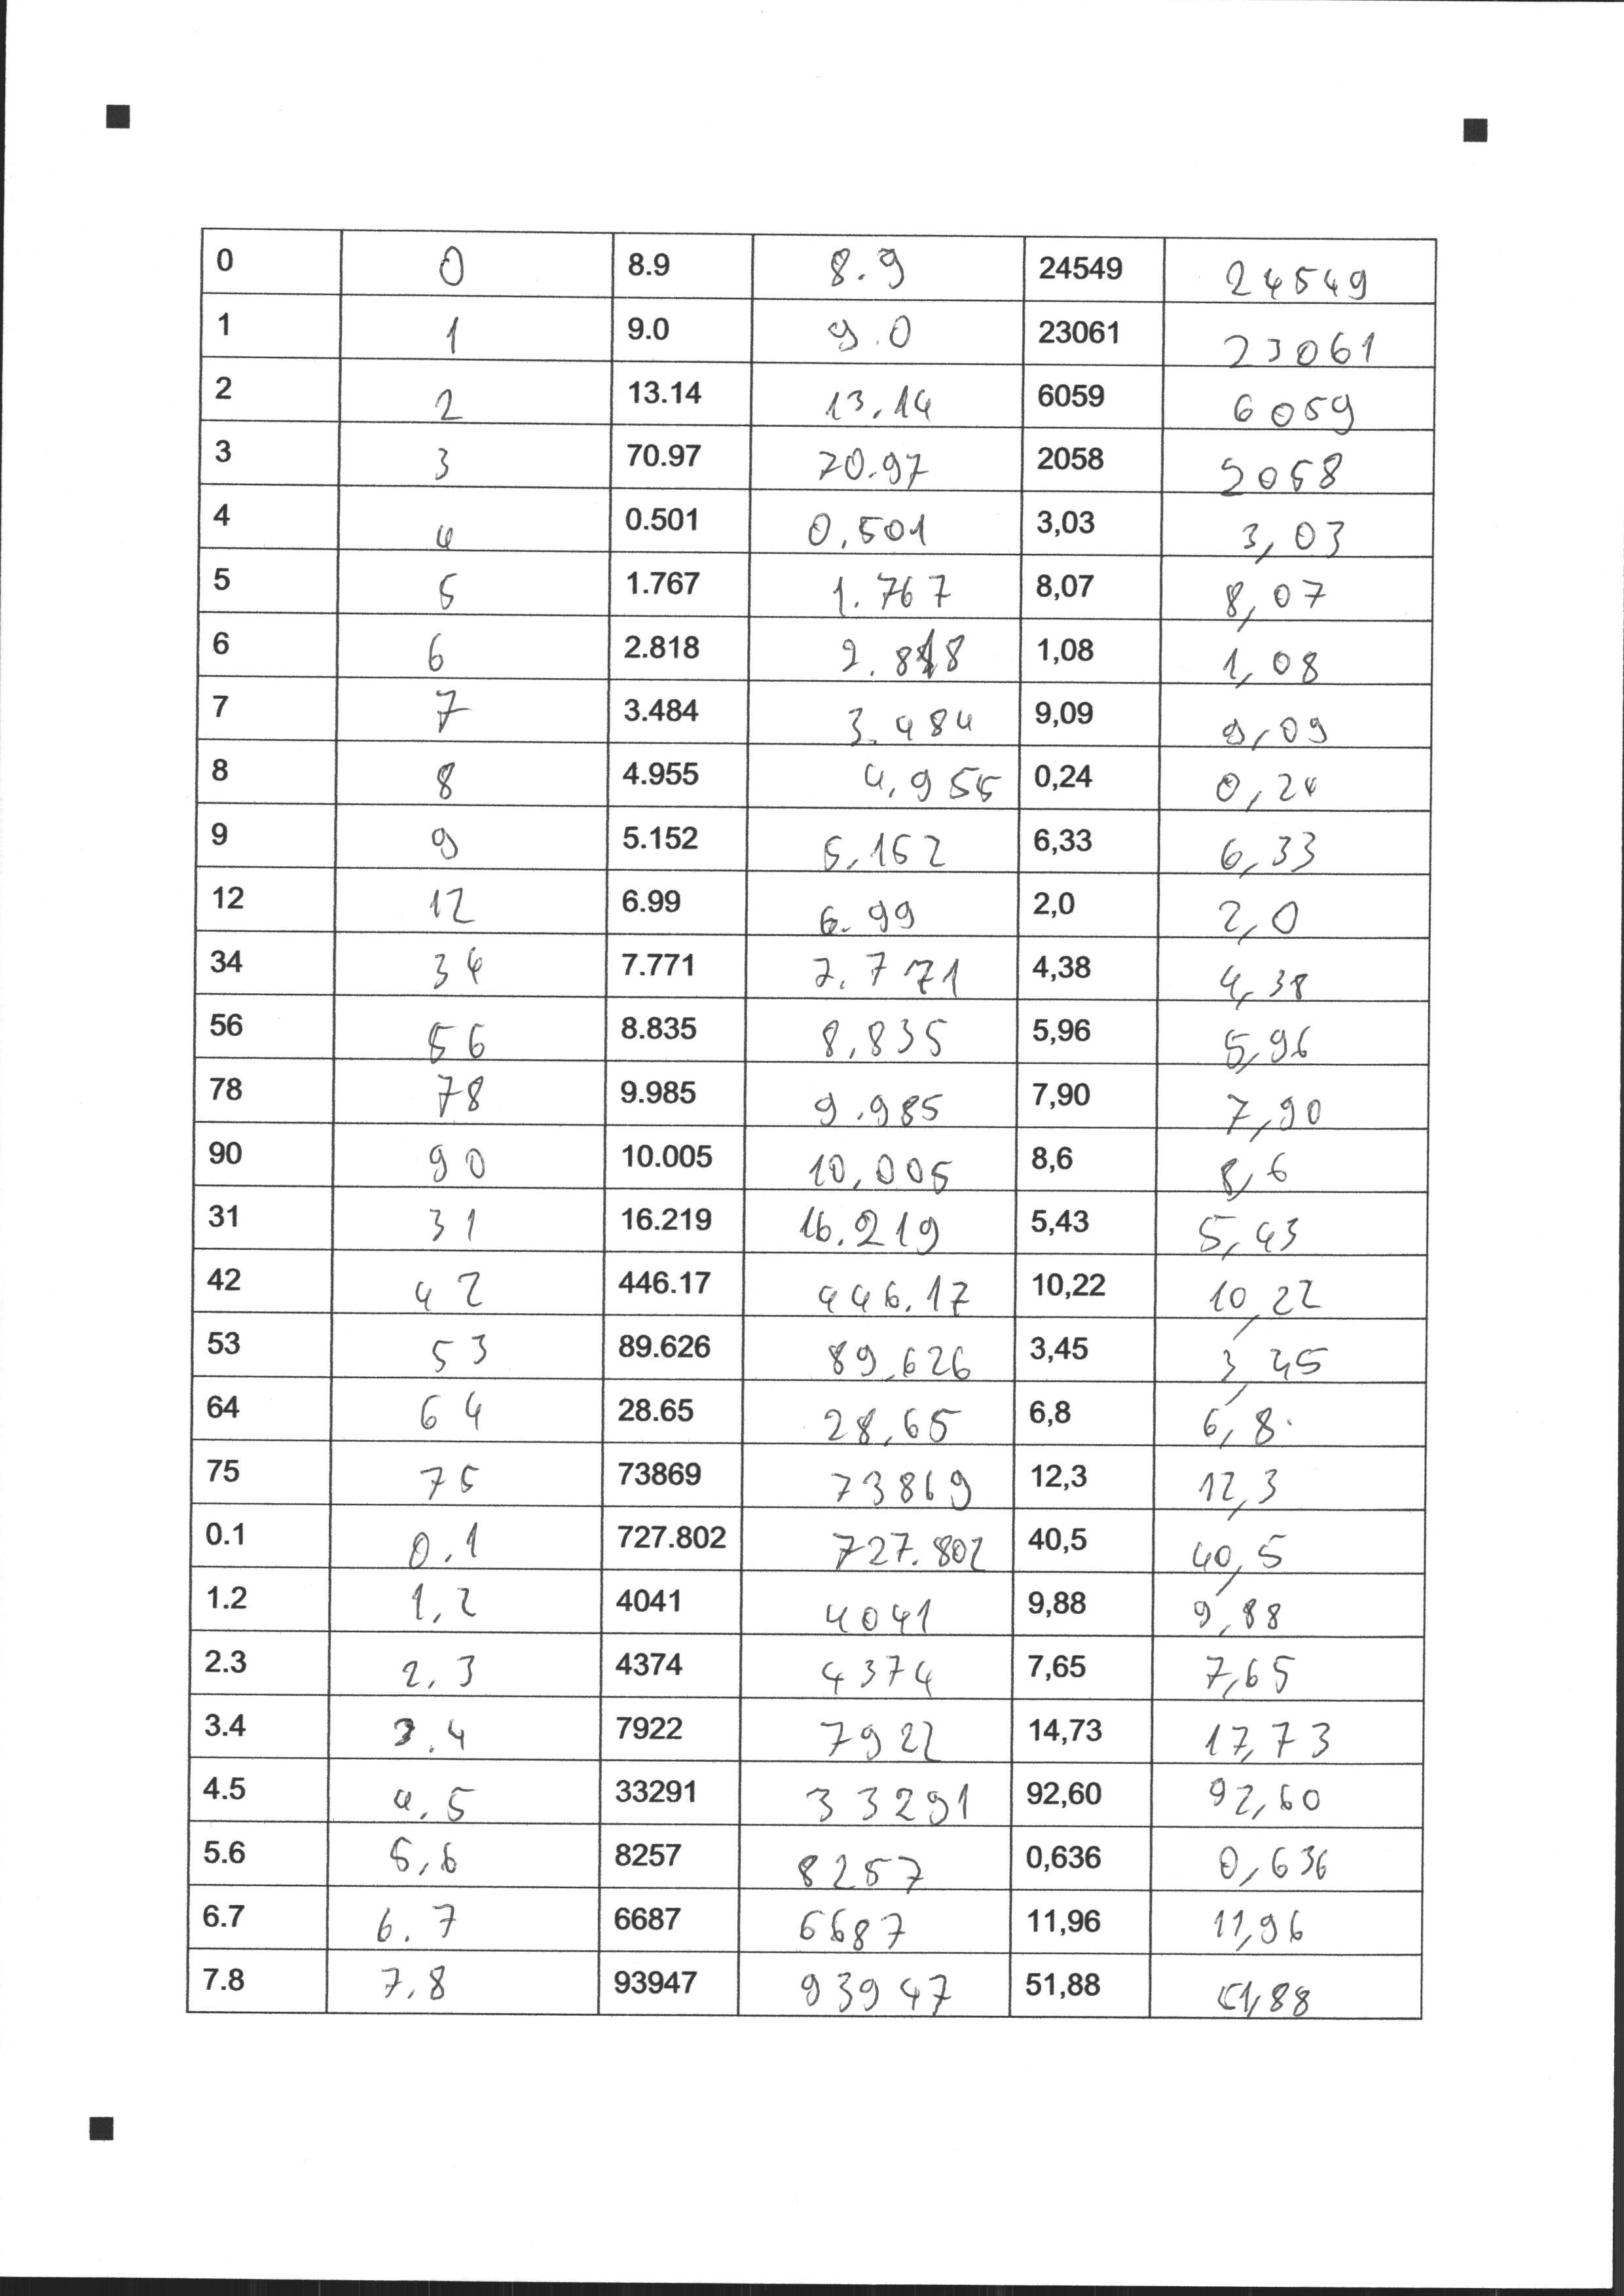 0 0 8.9 8.9 24549 24549
1 1 9.0 9.0 23061 23061
2 2 13.14 13.14 6059 6059
3 3 70.97 70.97 2058 2058
4 4 0.501 0,501 3,03 3,03
5 5 1.767 1.767 8,07 8,07
6 6 2.818 2.818 1,08 1,08
7 7 3.484 3.484 9,09 9,09
8 8 4.955 4,955 0,24 0,24
9 9 5.152 5,152 6,33 6,33
12 12 6.99 6.99 2,0 2,0
34 34 7.771 7.771 4,38 4,38
56 56 8.835 8,835 5,96 5,96
78 78 9.985 9.985 7,90 7,90
90 90 10.005 10,005 8,6 8,6
31 31 16.219 16.219 5,43 5,43
42 42 446.17 446.17 10,22 10,22
53 53 89.626 89,626 3,45 3,45
64 64 28.65 28,65 6,8 6,8
75 75 73869 73869 12,3 12,3
0.1 0.1 727.802 727.802 40,5 40,5
1.2 1,2 4041 4041 9,88 9,88
2.3 2,3 4374 4374 7,65 7,65
3.4 3.4 7922 7922 14,73 17,73
4.5 4,5 33291 33291 92,60 92,60
5.6 5,6 8257 8257 0,636 0,636
6.7 6.7 6687 6687 11,96 11,96
7.8 7,8 93947 93947 51,88 51,88